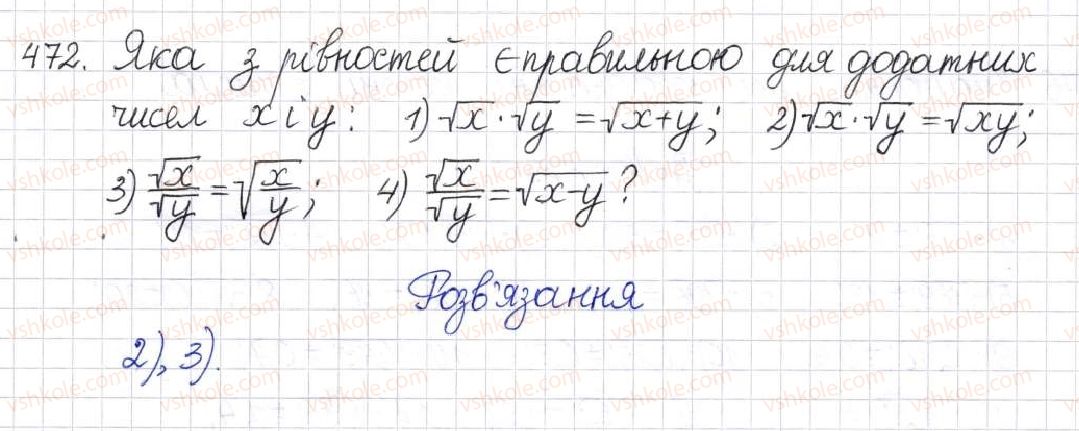 472. Яка з рівностей є правильною для додатних
чисел x і y: 1) √x · √y = √x+y; 2) √x · √y = √xy;
3) √x/√y = √x/y; 4) √x/√y = √x-y?
Розв'язання
2), 3).